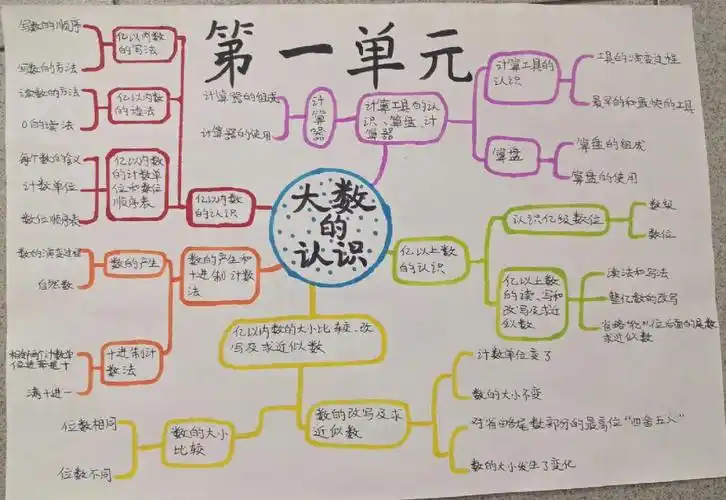 第一单元
大数
的
认识
亿以内数
的认识
亿以内数
的写法
写数的顺序
写数的方法
亿以内数
的读法
读数的方法
0的读法
亿以内数
的计数单
位和数位
顺序表
每个数的意义
计数单位
数位顺序表
数的产生和
十进制计数
法
数的产生
数的演变过程
自然数
十进制计
数法
相邻两个计数单
位进率是十
满十进一
计算工具的认
识、算盘、计
算器
计算器
计算器的组成
计算器的使用
计算工具的
认识
工具的演变过程
最早的和最快的工具
算盘
算盘的组成
算盘的使用
亿以上数
的认识
认识亿级数位
数级
数位
亿以上数
的读、写和
改写及求近
似数
读法和写法
整亿数的改写
省略"亿"位后面的尾数
求近似数
亿以内数的大小比较、改
写及求近似数
数的大小
比较
位数相同
位数不同
数的改写及求
近似数
计数单位变了
数的大小不变
对省略尾数部分的最高位"四舍五入"
数的大小发生了变化